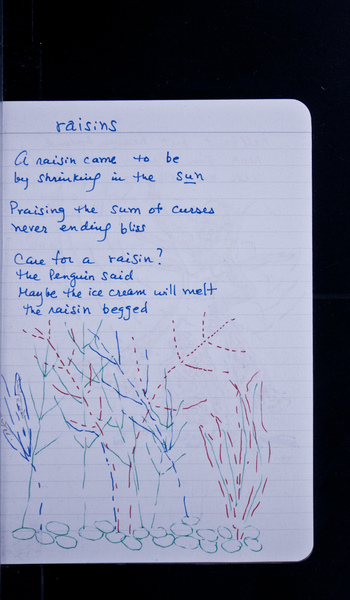 raisins
A raisin came to be
by shrinking in the sun
Praising the sum of curses
never ending bliss
Care for a raisin?
the Penguin said
Maybe the ice cream will melt
the raisin begged